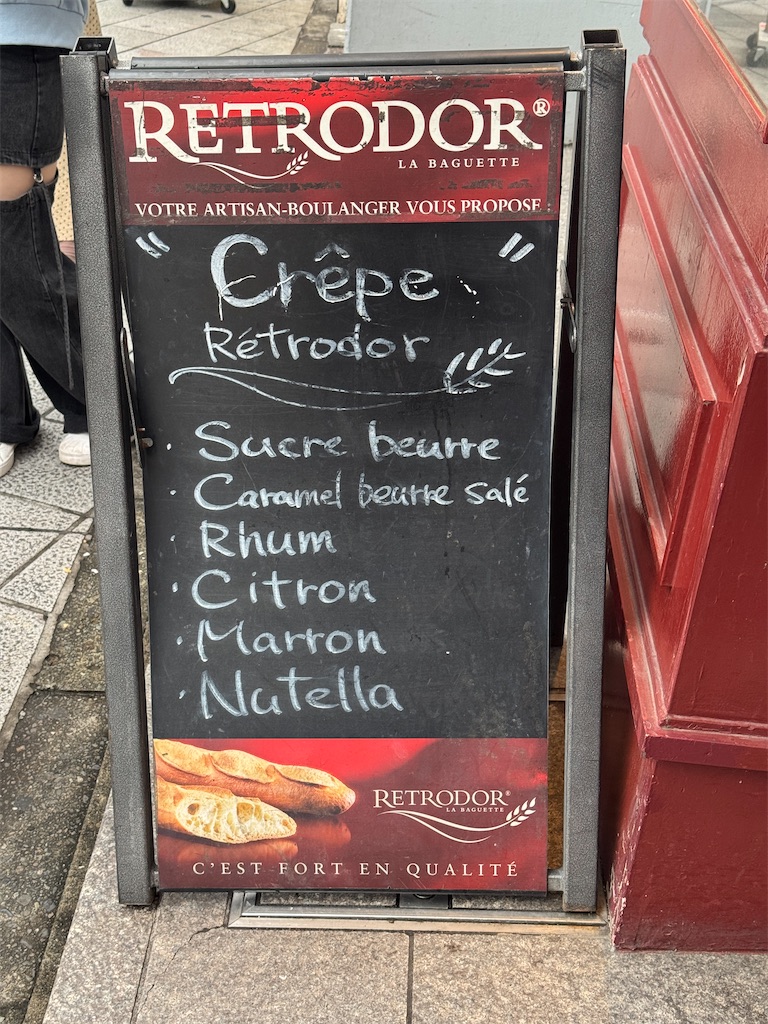 RETRODOR®
LA BAGUETTE
VOTRE ARTISAN-BOULANGER VOUS PROPOSE :
" Crêpe "
Rétrodor
· Sucre beurre
· Caramel beurre salé
· Rhum
· Citron
· Marron
· Nutella
RETRODOR®
LA BAGUETTE
C'EST FORT EN QUALITÉ